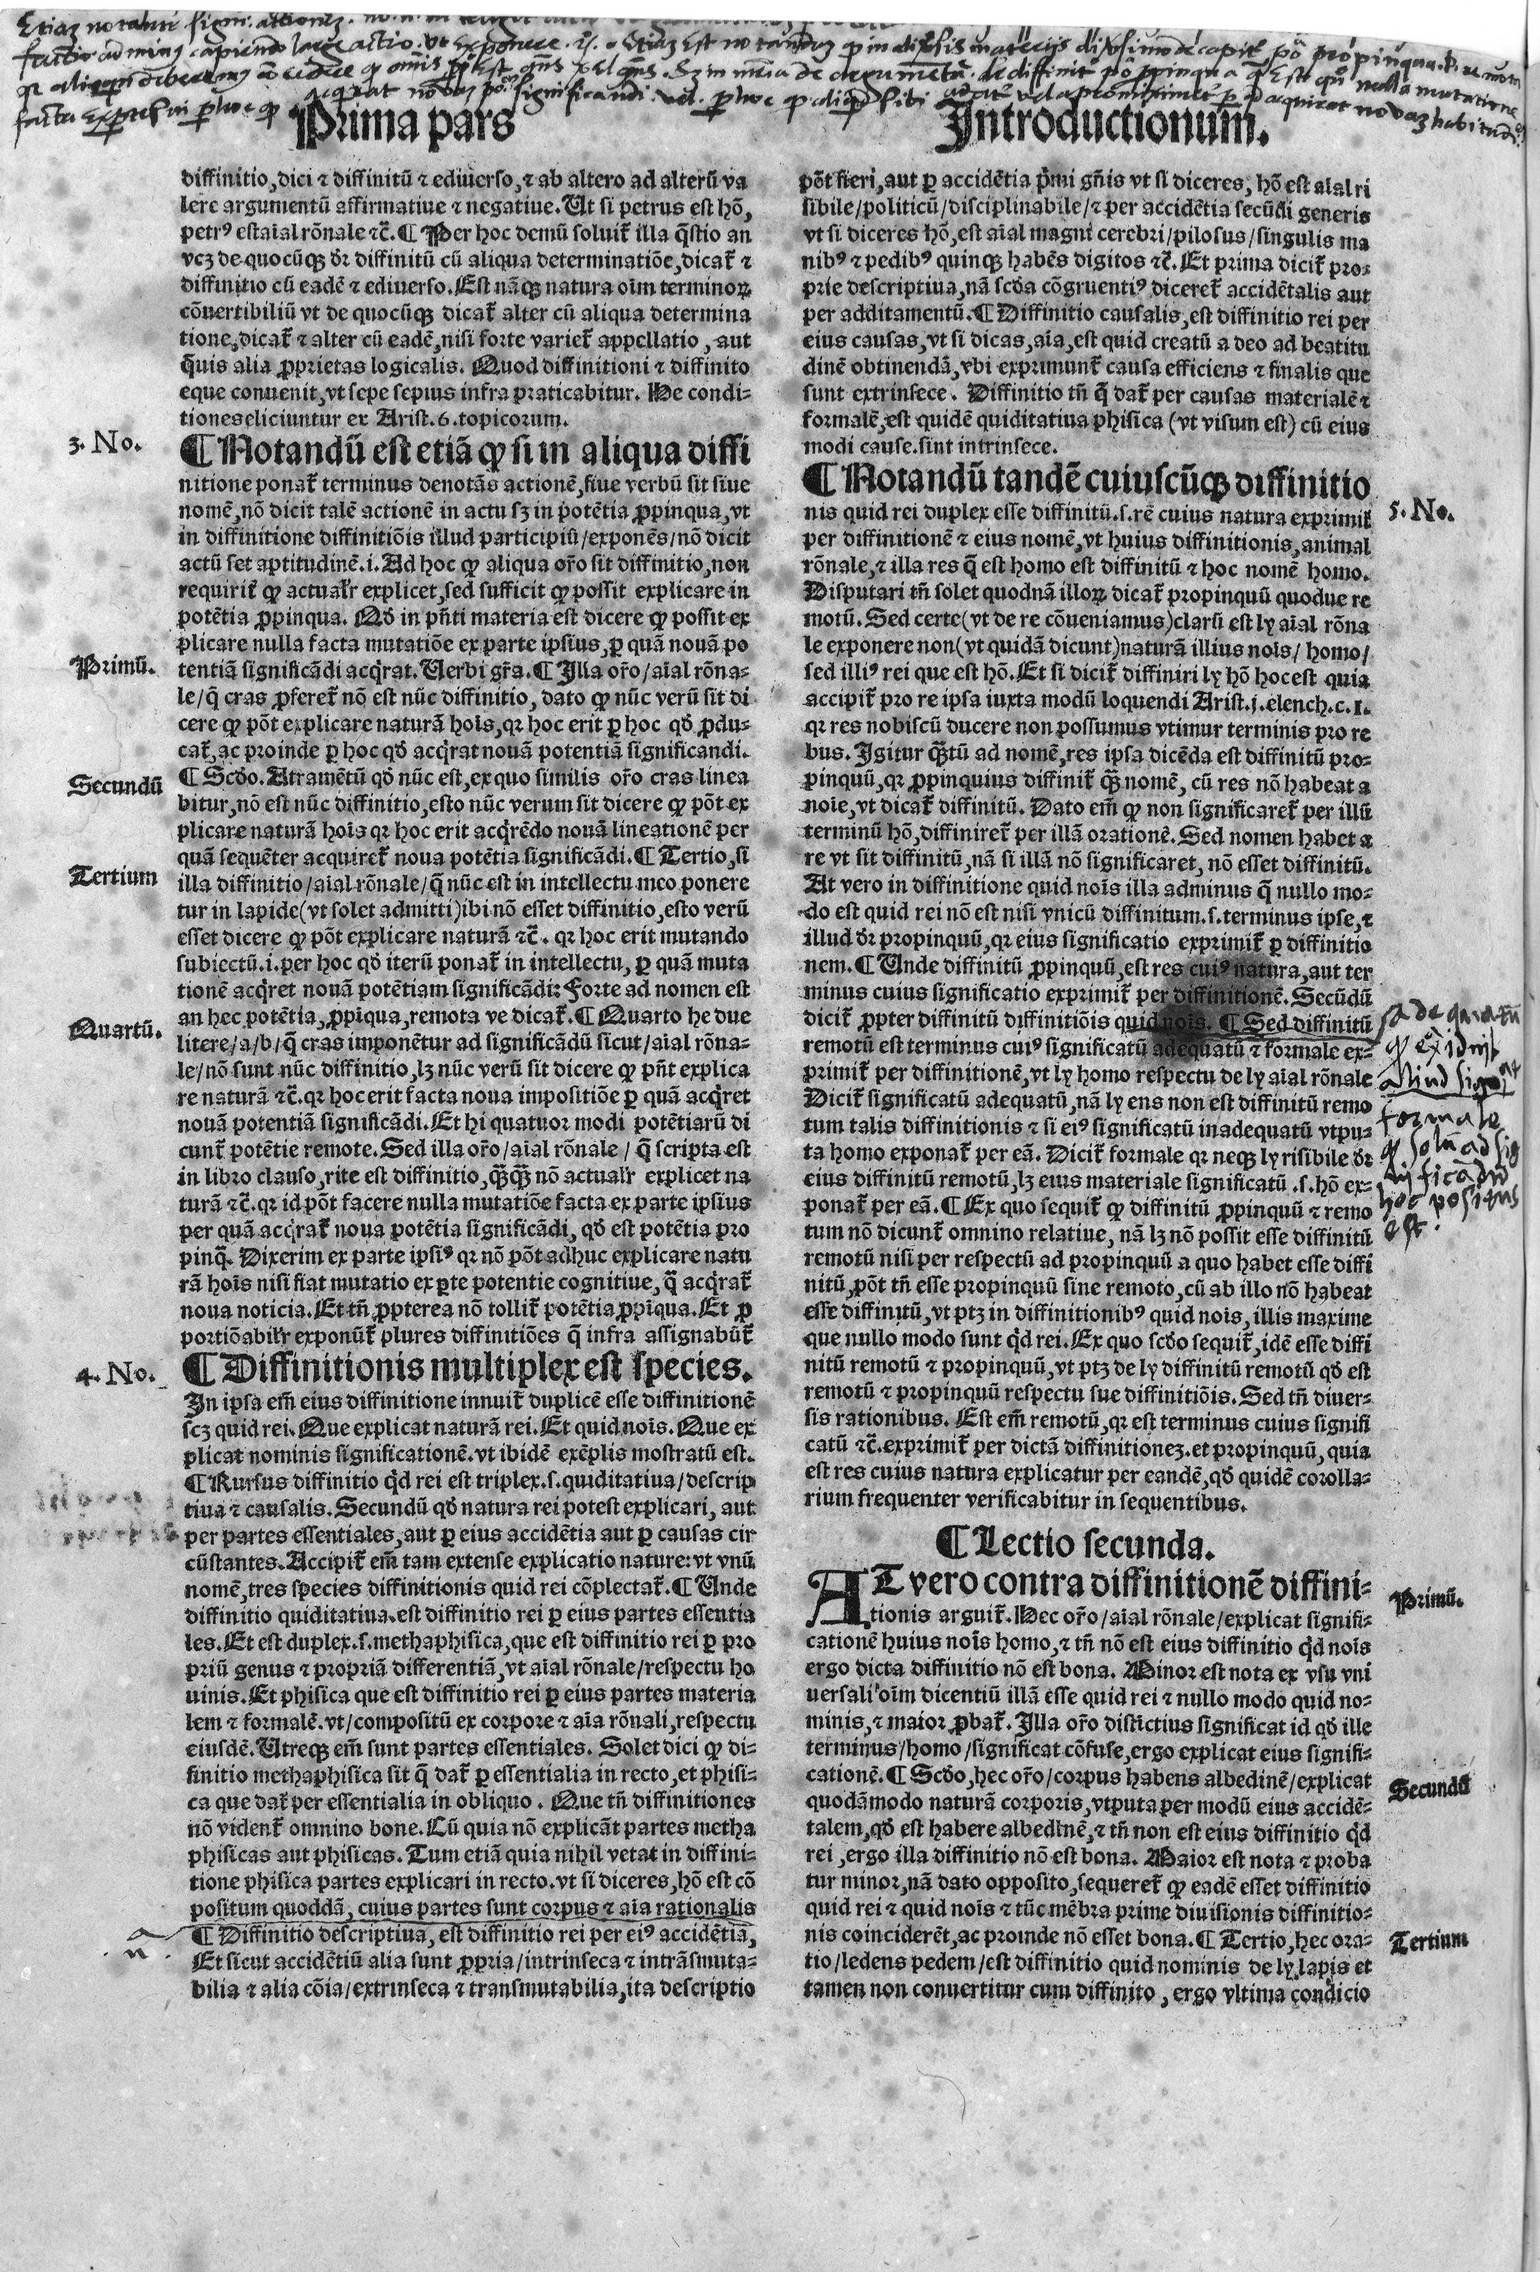 Prima pars
Introductionum.
diffinitio, dici ⁊ diffinitũ ⁊ ediuerso, ⁊ ab altero ad alterũ va
lere argumentũ affirmatiue ⁊ negatiue. Ut si petrus est hõ,
petrꝰ est aĩal rõnale ⁊c̃. ¶ Per hoc demũ soluit̃ illa q̃stio an
vcꝫ de quocũqꝫ dr̃ diffinitũ cũ aliqua determinatiõe, dicat̃ ⁊
diffinitio cũ eadẽ ⁊ ediuerso. Est nãqꝫ natura oĩm terminoꝝ
cõuertibiliũ vt de quocũqꝫ dicat̃ alter cũ aliqua determina
tione, dicat̃ ⁊ alter cũ eadẽ, nisi forte variet̃ appellatio, aut
q̃uis alia ꝓprietas logicalis. Quod diffinitioni ⁊ diffinito
eque conuenit, vt sepe sepius infra praticabitur. He condi-
tiones eliciuntur ex Arist. 6. topicorum.
3. No.
¶ Notandũ est etiã ꝙ si in aliqua diffi
nitione ponat̃ terminus denotãs actionẽ, siue verbũ sit siue
nomẽ, nõ dicit talẽ actionẽ in actu sꝫ in potẽtia ꝓpinqua, vt
in diffinitione diffinitiõis illud participiũ/exponẽs/nõ dicit
actũ set aptitudinẽ. i. Ad hoc ꝙ aliqua or̃o sit diffinitio, non
requirit̃ ꝙ actualr̃ explicet, sed sufficit ꝙ possit explicare in
potẽtia ꝓpinqua. Qđ in pñti materia est dicere ꝙ possit ex
plicare nulla facta mutatiõe ex parte ipsius, ꝑ quã nouã po
Primũ.
tentiã significãdi acq̃rat. Uerbi gr̃a. ¶ Illa or̃o/aĩal rõna-
le/q̃ cras ꝓferet̃ nõ est nũc diffinitio, dato ꝙ nũc verũ sit di
cere ꝙ põt explicare naturã hoĩs, qr hoc erit ꝑ hoc qđ ꝓdu-
cat̃, ac proinde ꝑ hoc qđ acq̃rat nouã potentiã significandi.
Secundũ
¶ Scđo. Atramẽtũ qđ nũc est, ex quo similis or̃o cras linea
bitur, nõ est nũc diffinitio, esto nũc verum sit dicere ꝙ põt ex
plicare naturã hoĩs qr hoc erit acq̃rẽdo nouã lineationẽ per
quã sequẽter acquiret̃ noua potẽtia significãdi. ¶ Tertio, si
Tertium
illa diffinitio/aĩal rõnale/q̃ nũc est in intellectu meo ponere
tur in lapide (vt solet admitti) ibi nõ esset diffinitio, esto verũ
esset dicere ꝙ põt explicare naturã ⁊c̃. qr hoc erit mutando
subiectũ. i. per hoc qđ iterũ ponat̃ in intellectu, ꝑ quã muta
tionẽ acq̃ret nouã potẽtiam significãdi: Forte ad nomen est
an hec potẽtia, ꝓpiqua, remota ve dicat̃. ¶ Quarto he due
Quartũ.
litere/a/b/q̃ cras imponẽtur ad significãdũ sicut/aĩal rõna-
le/nõ sunt nũc diffinitio, lꝫ nũc verũ sit dicere ꝙ pñt explica
re naturã ⁊c̃. qr hoc erit facta noua impositiõe ꝑ quã acq̃ret
nouã potentiã significãdi. Et hi quatuor modi potẽtiarũ di
cunt̃ potẽtie remote. Sed illa or̃o/aĩal rõnale/q̃ scripta est
in libro clauso, rite est diffinitio, q̃q̃ nõ actualr̃ explicet na
turã ⁊c̃. qr id põt facere nulla mutatiõe facta ex parte ipsius
per quã acq̃rat̃ noua potẽtia significãdi, qđ est potẽtia pro
pinq̃. Dixerim ex parte ipsiꝰ qr nõ põt adhuc explicare natu
rã hoĩs nisi fiat mutatio ex ꝑte potentie cognitiue, q̃ acq̃rat̃
noua noticia. Et tñ ꝓpterea nõ tollit̃ potẽtia ꝓpiqua. Et ꝓ
portiõabilr̃ exponũt̃ plures diffinitiões q̃ infra assignabũt̃
4. No.
¶ Diffinitionis multiplex est species.
In ipsa em̃ eius diffinitione innuit̃ duplicẽ esse diffinitionẽ
scꝫ quid rei. Que explicat naturã rei. Et quid noĩs. Que ex
plicat nominis significationẽ. vt ibidẽ exẽplis mostratũ est.
¶ Rursus diffinitio q̃d rei est triplex. s. quiditatiua/descrip
tiua ⁊ causalis. Secundũ qđ natura rei potest explicari, aut
per partes essentiales, aut ꝑ eius accidẽtia aut ꝑ causas cir
cũstantes. Accipit̃ em̃ tam extense explicatio nature: vt vnũ
nomẽ, tres species diffinitionis quid rei cõplectat̃. ¶ Unde
diffinitio quiditatiua. est diffinitio rei ꝑ eius partes essentia
les. Et est duplex. s. methaphisica, que est diffinitio rei ꝑ pro
priũ genus ⁊ propriã differentiã, vt aĩal rõnale/respectu ho
minis. Et phisica que est diffinitio rei ꝑ eius partes materia
lem ⁊ formalẽ. vt/compositũ ex corpore ⁊ aĩa rõnali, respectu
eiusdẽ. Utreqꝫ em̃ sunt partes essentiales. Solet dici ꝙ di-
finitio methaphisica sit q̃ dat̃ ꝑ essentialia in recto, et phisi-
ca que dat̃ per essentialia in obliquo. Que tñ diffinitiones
nõ vident̃ omnino bone. Cũ quia nõ explicãt partes metha
phisicas aut phisicas. Tum etiã quia nihil vetat in diffini-
tione phisica partes explicari in recto. vt si diceres, hõ est cõ
positum quoddã, cuius partes sunt corpus ⁊ aĩa rationalis
¶ Diffinitio descriptiua, est diffinitio rei per eiꝰ accidẽtia,
Et sicut accidẽtiũ alia sunt ꝓpria/intrinseca ⁊ intrãsmuta-
bilia ⁊ alia cõia/extrinseca ⁊ transmutabilia, ita descriptio
põt fieri, aut ꝑ accidẽtia p̃mi gñis vt si diceres, hõ est aĩal ri
sibile/politicũ/disciplinabile/⁊ per accidẽtia secũdi generis
vt si diceres hõ, est aĩal magni cerebri/pilosus/singulis ma
nibꝰ ⁊ pedibꝰ quinqꝫ habẽs digitos ⁊c̃. Et prima dicit̃ pro-
prie descriptiua, nã scđa cõgruentiꝰ diceret̃ accidẽtalis aut
per additamentũ. ¶ Diffinitio causalis, est diffinitio rei per
eius causas, vt si dicas, aĩa, est quid creatũ a deo ad beatitu
dinẽ obtinendã, vbi exprimunt̃ causa efficiens ⁊ finalis que
sunt extrinsece. Diffinitio tñ q̃ dat̃ per causas materialẽ ⁊
formalẽ, est quidẽ quiditatiua phisica (vt visum est) cũ eius
modi cause. sint intrinsece.
¶ Notandũ tandẽ cuiuscũqꝫ diffinitio
5. No.
nis quid rei duplex esse diffinitũ. s. rẽ cuius natura exprimit̃
per diffinitionẽ ⁊ eius nomẽ, vt huius diffinitionis, animal
rõnale, ⁊ illa res q̃ est homo est diffinitũ ⁊ hoc nomẽ homo.
Disputari tñ solet quodnã illoꝝ dicat̃ propinquũ quodue re
motũ. Sed certe (vt de re cõueniamus) clarũ est ly aĩal rõna
le exponere non (vt quidã dicunt) naturã illius noĩs/homo/
sed illiꝰ rei que est hõ. Et si dicit̃ diffiniri ly hõ hoc est quia
accipit̃ pro re ipsa iuxta modũ loquendi Arist. j. elench. c. 1.
qr res nobiscũ ducere non possumus vtimur terminis pro re
bus. Igitur q̃tũ ad nomẽ, res ipsa dicẽda est diffinitũ pro-
pinquũ, qr ꝓpinquius diffinit̃ q̃ nomẽ, cũ res nõ habeat a
noĩe, vt dicat̃ diffinitũ. Dato em̃ ꝙ non significaret̃ per illũ
terminũ hõ, diffiniret̃ per illã orationẽ. Sed nomen habet a
re vt sit diffinitũ, nã si illã nõ significaret, nõ esset diffinitũ.
At vero in diffinitione quid noĩs illa adminus q̃ nullo mo-
do est quid rei nõ est nisi vnicũ diffinitum. s. terminus ipse, ⁊
illud dr̃ propinquũ, qr eius significatio exprimit̃ ꝑ diffinitio
nem. ¶ Unde diffinitũ ꝓpinquũ, est res cuiꝰ natura, aut ter
minus cuius significatio exprimit̃ per diffinitionẽ. Secũdũ
dicit̃ ꝓpter diffinitũ diffinitiõis quid noĩs. ¶ Sed diffinitũ
remotũ est terminus cuiꝰ significatũ adequatũ ⁊ formale ex-
primit̃ per diffinitionẽ, vt ly homo respectu de ly aĩal rõnale
Dicit̃ significatũ adequatũ, nã ly ens non est diffinitũ remo
tum talis diffinitionis ⁊ si eiꝰ significatũ inadequatũ vtpu-
ta homo exponat̃ per eã. Dicit̃ formale qr neqꝫ ly risibile dr̃
eius diffinitũ remotũ, lꝫ eius materiale significatũ .s. hõ ex-
ponat̃ per eã. ¶ Ex quo sequit̃ ꝙ diffinitũ ꝓpinquũ ⁊ remo
tum nõ dicunt̃ omnino relatiue, nã lꝫ nõ possit esse diffinitũ
remotũ nisi per respectũ ad propinquũ a quo habet esse diffi
nitũ, põt tñ esse propinquũ sine remoto, cũ ab illo nõ habeat
esse diffinitũ, vt ptꝫ in diffinitionibꝰ quid nois, illis maxime
que nullo modo sunt q̃d rei. Ex quo scđo sequit̃, idẽ esse diffi
nitũ remotũ ⁊ propinquũ, vt ptꝫ de ly diffinitũ remotũ qđ est
remotũ ⁊ propinquũ respectu sue diffinitiõis. Sed tñ diuer-
sis rationibus. Est em̃ remotũ, qr est terminus cuius signifi
catũ ⁊c̃. exprimit̃ per dictã diffinitionez. et propinquũ, quia
est res cuius natura explicatur per eandẽ, qđ quidẽ corolla-
rium frequenter verificabitur in sequentibus.
adequatũ
formale
est.
¶ Lectio secunda.
AT vero contra diffinitionẽ diffini-
Primũ.
tionis arguit̃. Hec or̃o/aĩal rõnale/explicat signifi-
cationẽ huius noĩs homo, ⁊ tñ nõ est eius diffinitio q̃d noĩs
ergo dicta diffinitio nõ est bona. Minor est nota ex vsu vni
uersali oĩm dicentiũ illã esse quid rei ⁊ nullo modo quid no-
minis, ⁊ maior ꝓbat̃. Illa or̃o distĩctius significat id qđ ille
terminus/homo/significat cõfuse, ergo explicat eius signifi-
cationẽ. ¶ Scđo, hec or̃o/corpus habens albedinẽ/explicat
Secundũ
quodãmodo naturã corporis, vtputa per modũ eius accidẽ-
talem, qđ est habere albedinẽ, ⁊ tñ non est eius diffinitio q̃d
rei, ergo illa diffinitio nõ est bona. Maior est nota ⁊ proba
tur minor, nã dato opposito, sequeret̃ ꝙ eadẽ esset diffinitio
quid rei ⁊ quid noĩs ⁊ tũc mẽbra prime diuisionis diffinitio-
nis coinciderẽt, ac proinde nõ esset bona. ¶ Tertio, hec ora-
Tertium
tio/ledens pedem/est diffinitio quid nominis de ly lapis et
tamen non conuertitur cum diffinito, ergo vltima condicio